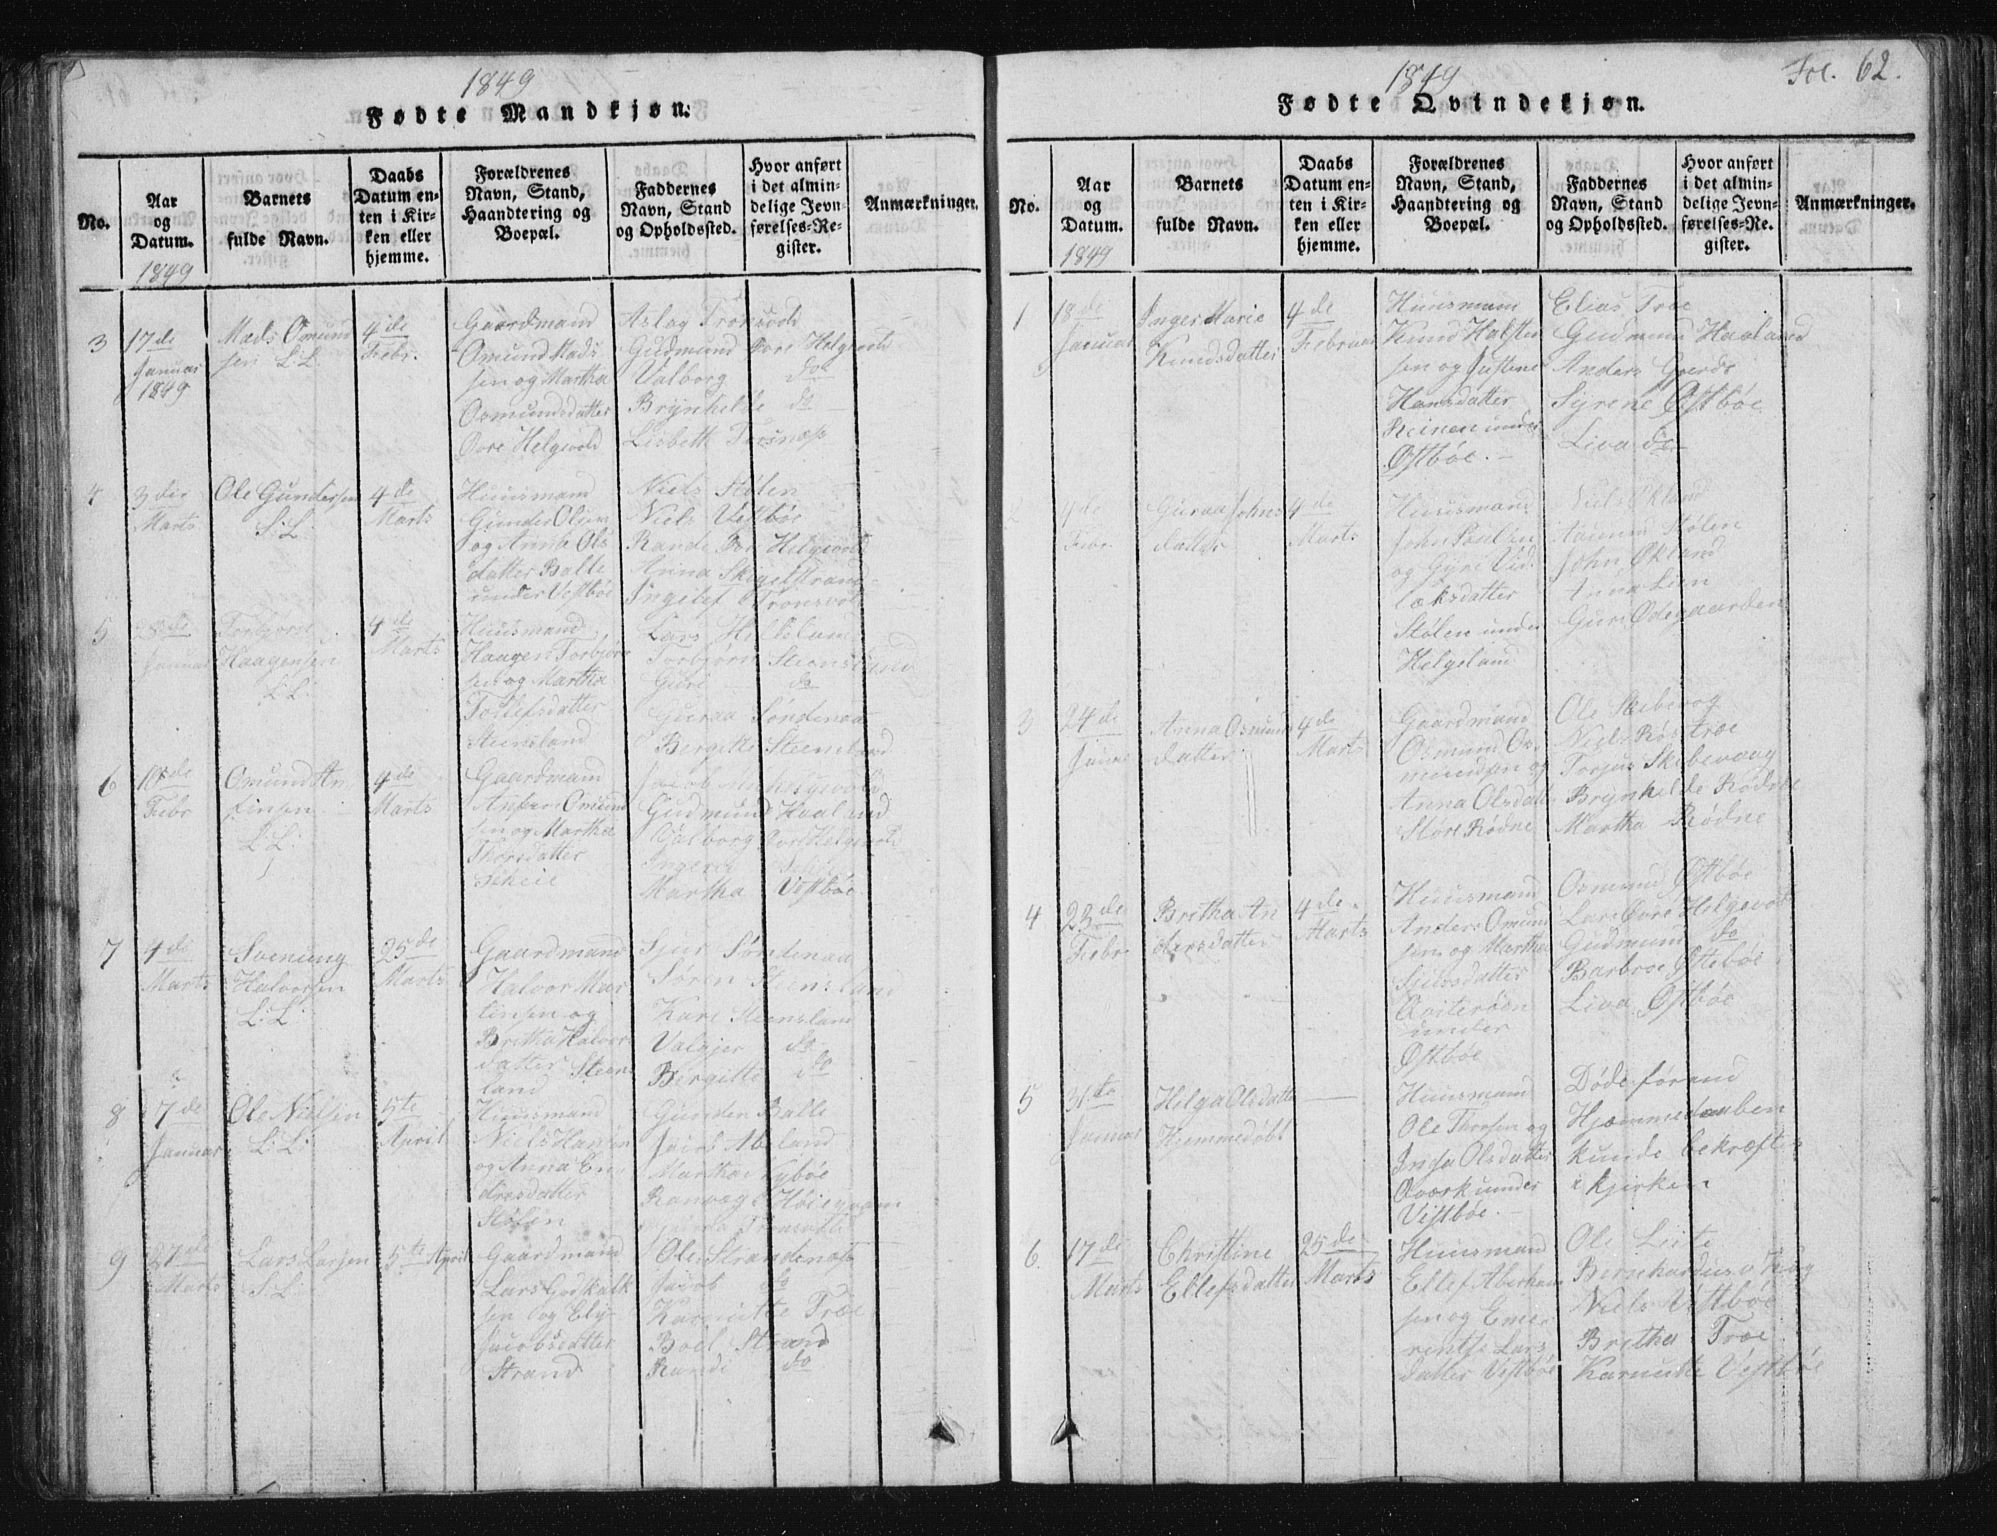 1849
Fødte Mandkjøn.
No.
Aar
og
Datum.
1849
Barnets
fulde Navn.
Daabs
Datum en-
ten i Kir-
ken eller
hjemme.
Forældrenes
Navn, Stand,
Haandtering og
Boepæl.
Faddernes
Navn, Stand
og Opholdssted.
Hvor anført
i det almin-
delige Jevn-
førelses-Re-
gister.
Anmærkninger.
3
17de
Januar
1849
Mads Osmund
sen L.L.
4de
Febr.
Gaardmand
Omund Mads
sen og Martha
Osmundsdatter
Øvre Helgevold
Aslag Trønsvold
Gudmund Øvre Helgevold
Valborg do
Brynhelde do
Lisbeth
4
3die
Marts
Ole Gundersen
L.L.
4de
Marts
Huusmand
Gunder Olsen
og Anna Ols
datter Balle
under Vestbøe
Niels Stølen
Niels Vestbøe
Rande Øvr Helgevold
Anna Skigelstrand
Ingelef Trønsvold
5
Januar
Torbjørn
Haagensen
L.L.
4de
Marts
Huusmand
Haagen Torbjørn
sen og Martha
Tollefsdatter
Steensland
Lars
Torbjørn Steensland
Guri do
Guraa Søndenaa
Bergitte Steensland
6
10de
Febr
Omund An
finsen
L.L.
4de
Marts
Gaardmand
Anfin Omund
sen og Martha
Thorsdatter
Skeie
Jacob
Gudmund Haaland
Valborg Øvr Helgevold
Martha Vestbøe
7
4de
Marts
Svenung
Halvorsen
L.L.
25de
Marts
Gaardmand
Halvor Mar
tinsen og
Bretha Halvors
datter Steens
land
Sjur Søndenaa
Søren Steensland
Kari Steensland
Valgjer do
Bergitte do
8
7de
Januar
Ole Nielsen
L.L.
5te
April
Huusmand
Niels Hansen
og Anna En
dresdatter
Stølen
Gunder Balle
Jacob Abeland
Martha Nybøe
9
27de
Marts
Lars Larsen
S.L.
5te April
Gaardmand
Lars Godskalk
sen og Eli
Jacobsdatter
Strand
Ole Strandenæs
Jacob do
Karnitte Træe
Boel Strand
Randi do
1849
Fol. 62.
Fødte Qvindekjøn.
No.
Aar
og
Datum.
1849
Barnets
fulde Navn.
Daabs
Datum en-
ten i Kir-
ken eller
hjemme.
Forældrenes
Navn, Stand,
Haandtering og
Boepæl.
Faddernes
Navn, Stand
og Opholdssted.
Hvor anført
i det almin-
delige Jevn-
førelses-Re-
gister.
Anmærkninger.
1
18de
Januar
Inger Marie
Knudsdatter
4de
Februar
Huusmann
Knud Halsten
sen og Justene
Hansdatter
Reinen under
Østbøe.
Elias Træe
Gudmun Haaland
Anders Gjerde
Syrene Østbøe
Liva do
2
4de
Febr
Guraa Johns
datter
4de
Marts
Huusmand
John Paulsen
og Gyre Vid
læksdatter
Stølen under
Helgeland
Niels Økland
Aanun Stølen
John Økland
Anna Lien
Guri Ødegaarden
3
24de
Janua
Anna Osmunds
datter
4de
Marts
Gaardmand
Osmund Os
mundsen og
Anna Olsdatt
Støre Rødne
Ole Skebevog
Niels Røstræe
Torjus Skebevaag
Brynhelde Rødne
Martha Rødne
4
23de
Febr
Bretha An
dersdatter
4de
Marts
Huusmand
Anders Omund
sen og Martha
Sjursdatter
Qviterøen
under
Østbøe
Osmund Østbøe
Lars Øvre Helgevol
Gudmund do
Barbroe Østebøe
Liva Østbøe
5
31te
Januar
Helga Olsdatter
Hjemmedøbt
Huusmand
Ole Thorsen og
Inga Olsdatter
Qværk under
Vestbøe.
Døde førend
Hjæmmedaaben
kunde bekræftes
i kjirken
6
17de
Marts
Christine
Ellefsdatter
25de
Marts
Huusmand
Ellef Aberham
sen og Emer
rentse Lars
datter Vestbøe
Ole Leite
Bernhardus
Niels Vestbøe
Bretha Træe
Karnitte Vestbøe